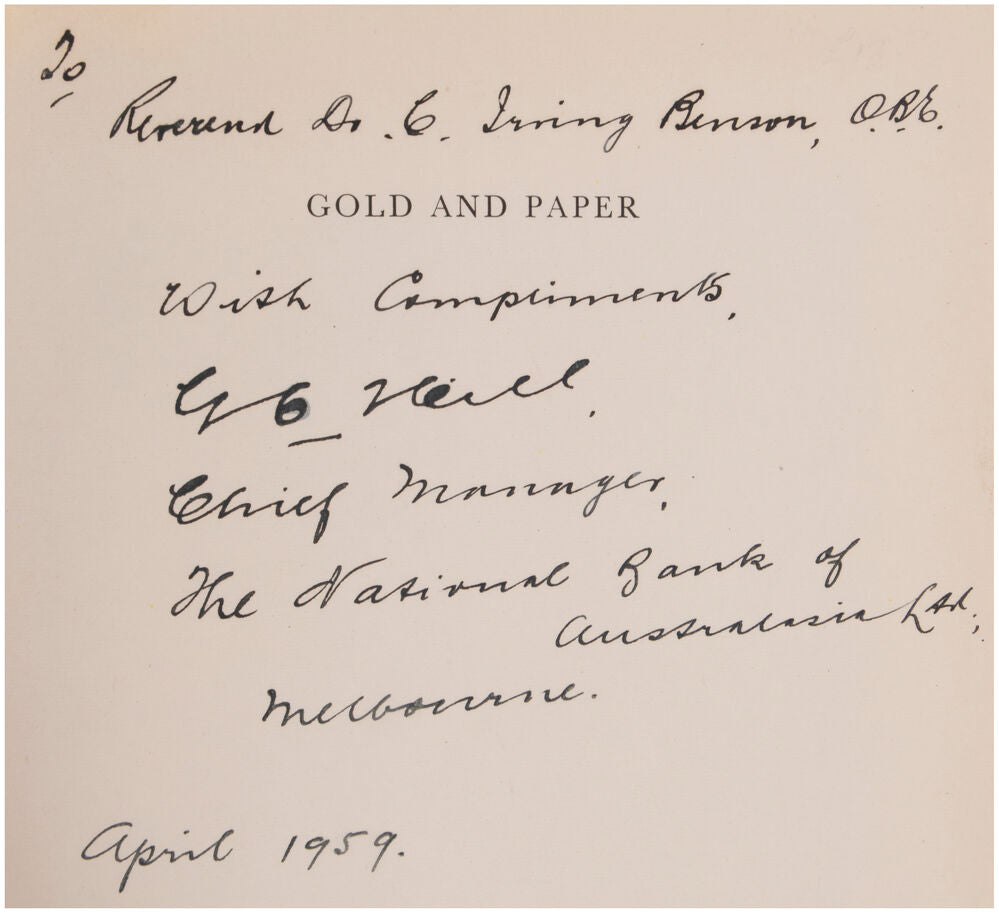 To
Reverend Dr. C. Irving Benson, O.B.E.
GOLD AND PAPER
With Compliments,
Chief Manager,
The National Bank of
Australasia Ltd.,
Melbourne.
April 1959.